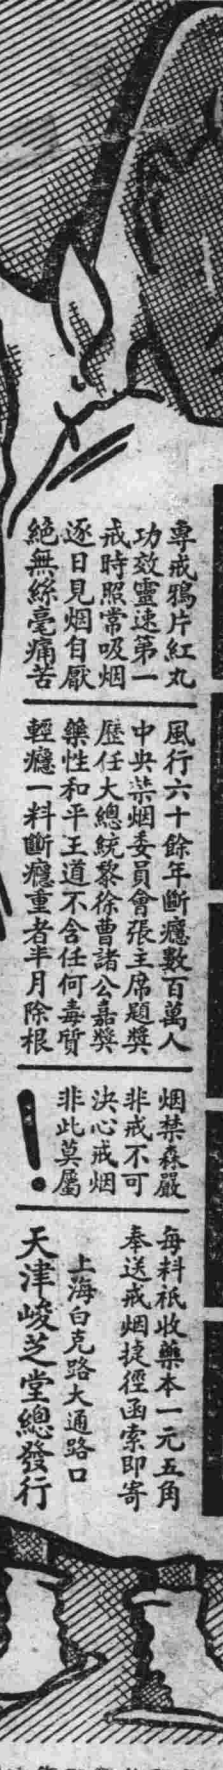 專戒鴉片紅丸
功效靈速第一
戒時照常吸烟
逐日見烟自厭
絕無絲毫痛苦
風行六十餘年斷癮數百萬人
中央禁烟委員會張主席題獎
歷任大總統黎徐曹諸公嘉獎
藥性和平王道不含任何毒質
輕癮一料斷癮重者半月除根
烟禁森嚴
非戒不可
決心戒烟
非此莫屬
！
每料祇收藥本一元五角
奉送戒烟捷徑函索即寄
上海白克路大通路口
天津峻芝堂總發行